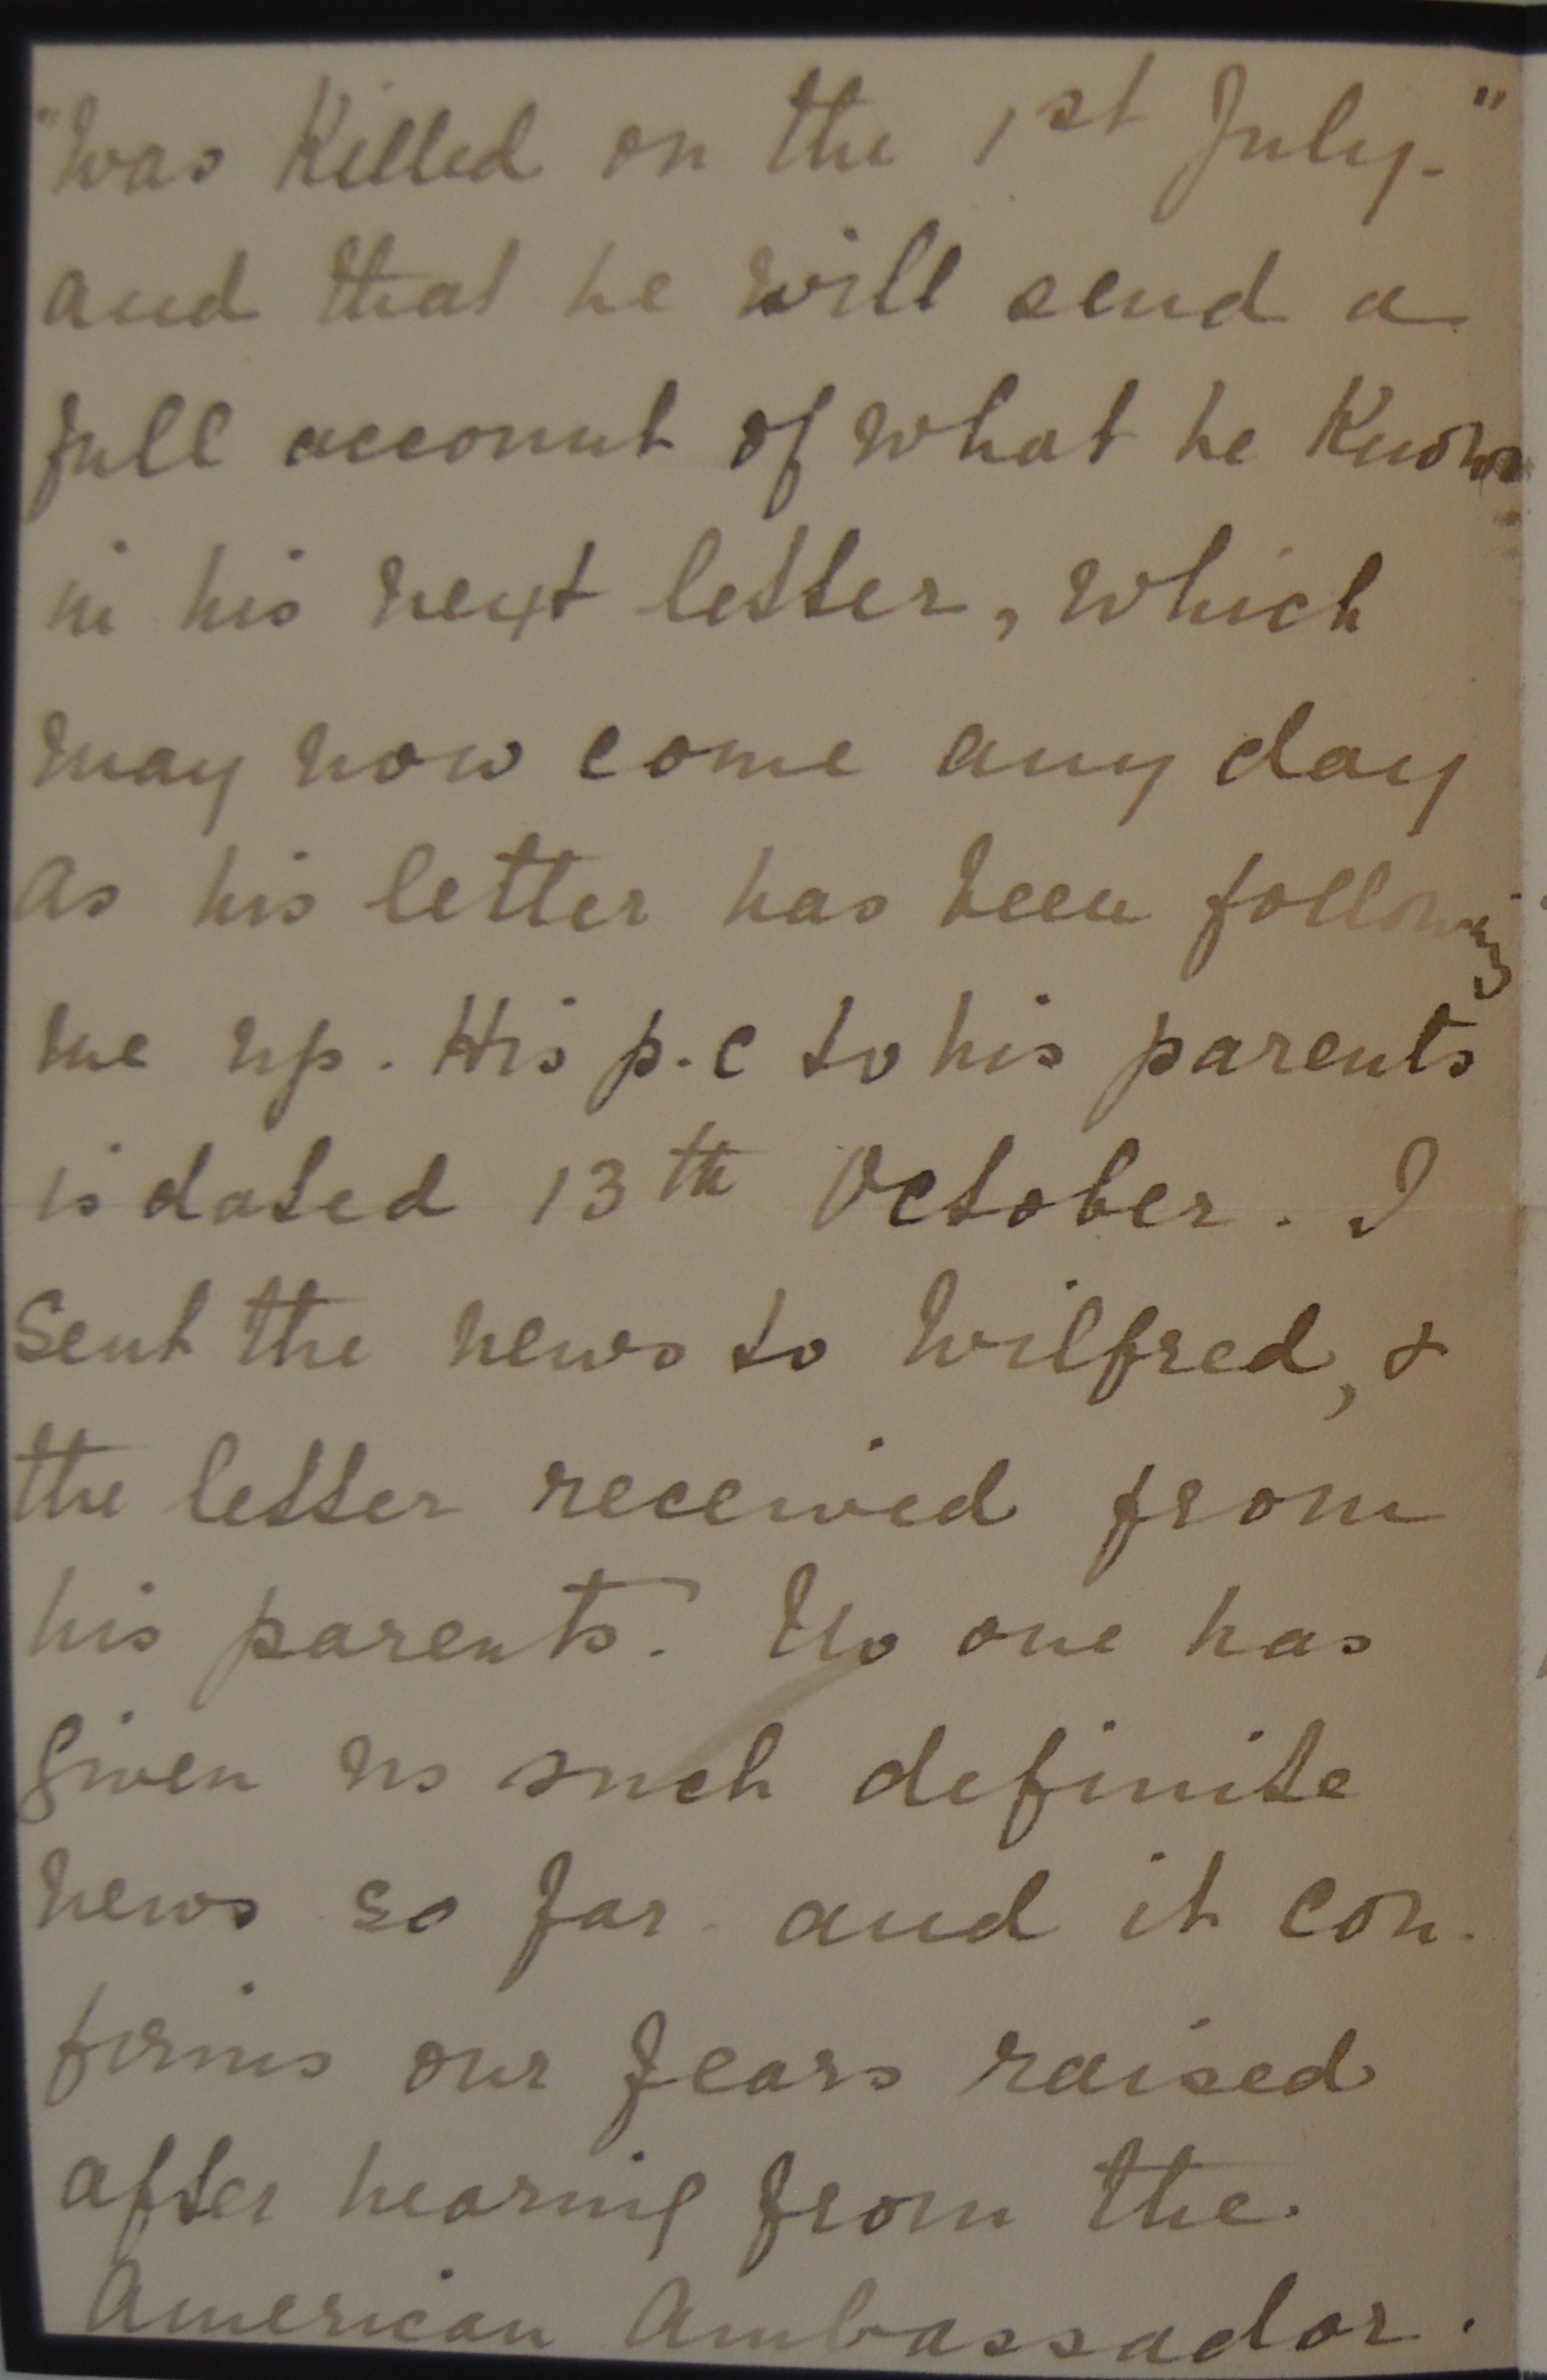 "Was Killed on the 1st July."
and that he will send a
full account of what he Knows
in his next letter, which
may now come any day
as his letter has been following
me up. His p.c to his parents
is dated 13th October. I
sent the news to Wilfred, &
the letter received from
his parents. No one has
given us such definite
news so far - and it con-
firms our fears raised
after hearing from the
American Ambassador.